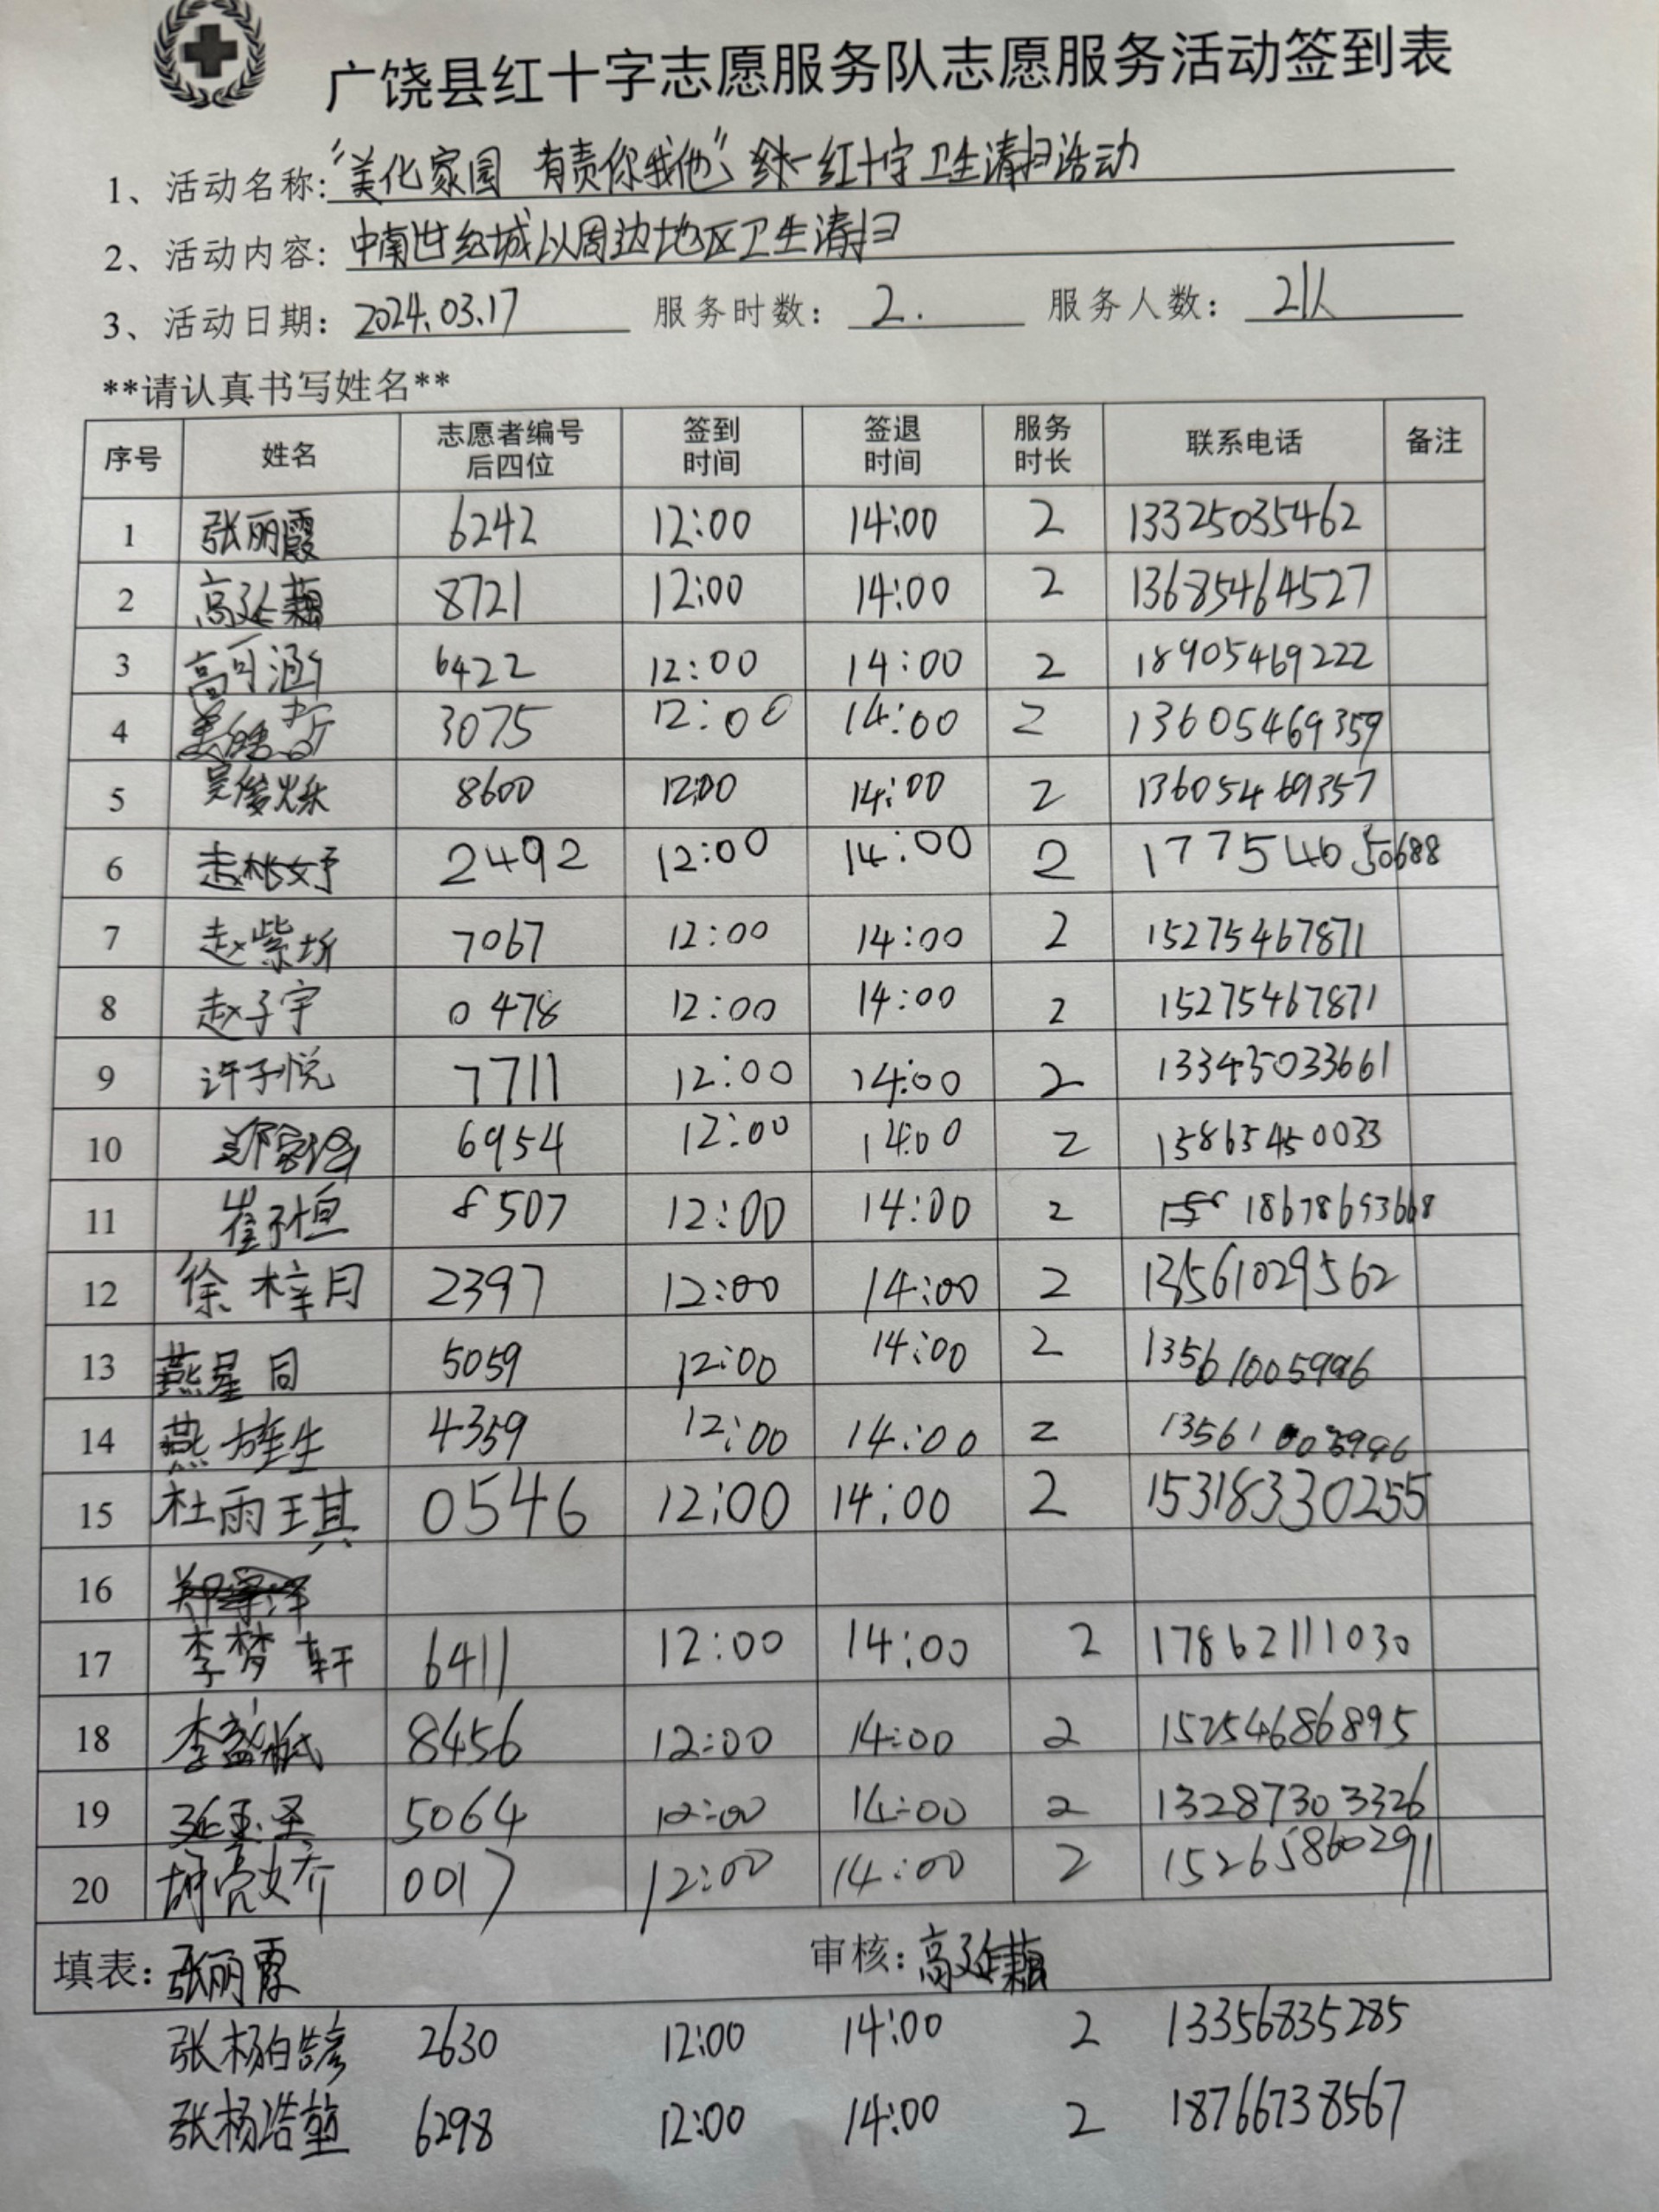 广饶县红十字志愿服务队志愿服务活动签到表
1、活动名称:"美化家园 有责你我他"红十字卫生清扫活动
2、活动内容:中南世纪城以周边地区卫生清扫
3、活动日期:2024.03.17 服务时数:2. 服务人数:21人
**请认真书写姓名**
序号 姓名 志愿者编号后四位 签到时间 签退时间 服务时长 联系电话 备注
1 张丽霞 6242 12:00 14:00 2 13325035462
2 高延藕 8721 12:00 14:00 2 13685464527
3 高可涵 6422 12:00 14:00 2 18905469222
4 3075 12:00 14:00 2 13605469359
5 吴俊烁 8600 12:00 14:00 2 13605469357
6 赵彬妤 2492 12:00 14:00 2
7 赵紫圻 7067 12:00 14:00 2 15275467871
8 赵子宇 0478 12:00 14:00 2 15275467871
9 许子悦 7711 12:00 14:00 2 133435033661
10 6954 12:00 14:00 2 15865450033
11 崔子恒 8507 12:00 14:00 2 18678693668
12 徐梓月 2397 12:00 14:00 2 13561029562
13 燕星同 5059 12:00 14:00 2 13561005996
14 燕雄生 4359 12:00 14:00 2 13561005996
15 杜雨琪 0546 12:00 14:00 2 15318330255
16
17 李梦轩 6411 12:00 14:00 2 17862111030
18 李盛彬 8456 12:00 14:00 2 15254686895
19 延玉圣 5064 12:00 14:00 2 13287303326
20 胡亮妎 0017 12:00 14:00 2 15265860291
填表:张丽霞 审核:高延藕
张杨皓彦 2630 12:00 14:00 2 13356835285
张杨浩堃 6298 12:00 14:00 2 18766738567